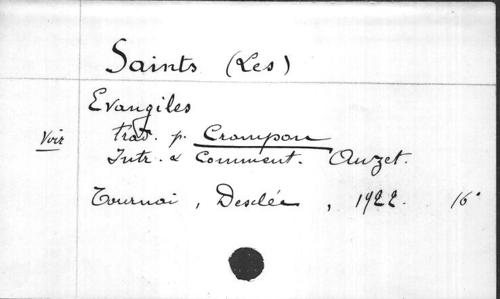 Saints (Les)
Evangiles
Voir trad. p. Crampon
Intr. & Comment. Auzet.
Tournai, Desclée, 1922. 16°